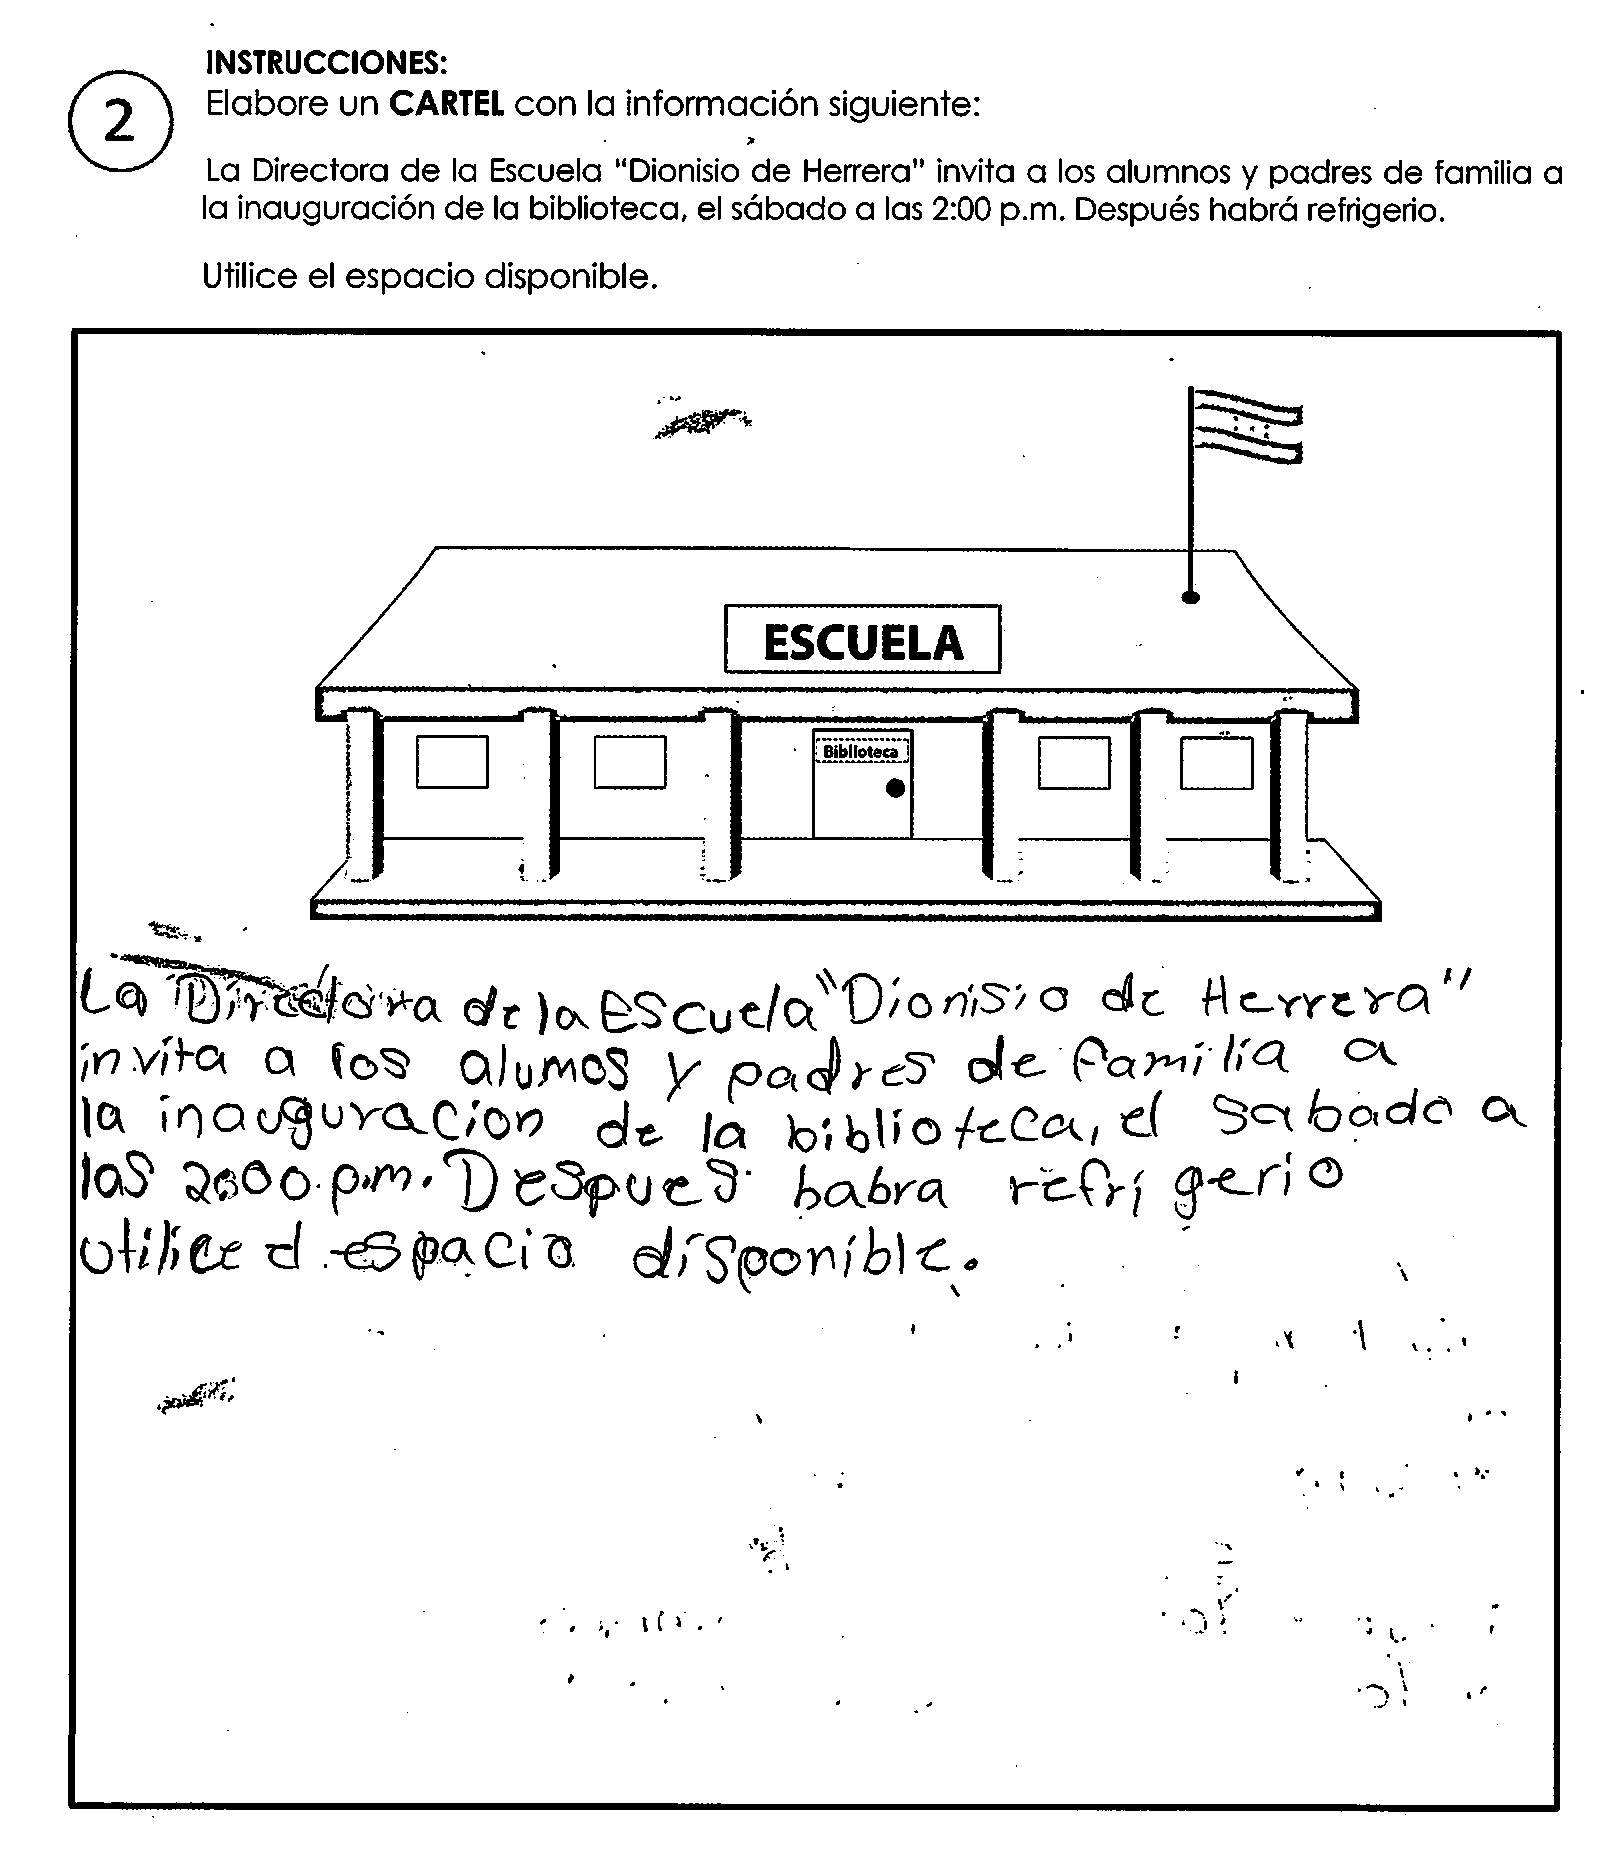 INSTRUCCIONES:
2
Elabore un CARTEL con la información siguiente:
La Directora de la Escuela "Dionisio de Herrera" invita a los alumnos y padres de familia a
la inauguración de la biblioteca, el sábado a las 2:00 p.m. Después habrá refrigerio.
Utilice el espacio disponible.
ESCUELA
Biblioteca
La Directora de la Escuela "Dionisio de Herrera"
invita a los alumos y padres de familia a
la inauguracion de la biblioteca, el sabado a
las 2:00.p.m. Despues babra refrigerio
utilice el espacio disponible.